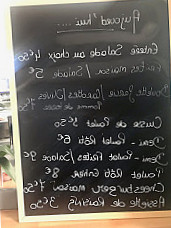 Aujourd'hui ....
Entrée Salade au choix 4€50
Tartes maison / Salade 5€
Paupiettes / Olives
Pomme de terre
Cuisse de Poulet 4€50
Demi - Poulet Rôti 6€
Demi - Poulet Frites / Salade 9€
Poulet Rôti Entier 8€
Cheesburger maison 7€50
Assiette de Raisins 3€50